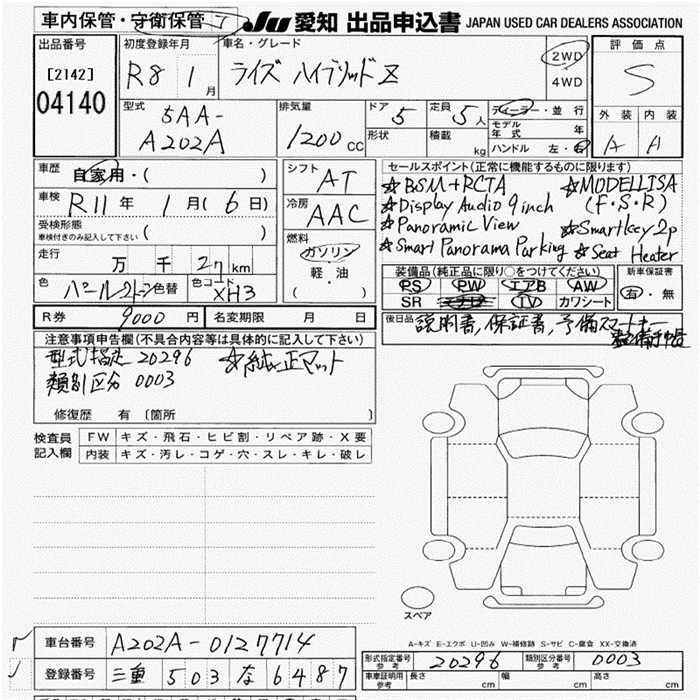 車内保管・守衛保管
JU 愛知 出品申込書 JAPAN USED CAR DEALERS ASSOCIATION
出品番号
[2142]
04140
初度登録年月
R8 1月
車名・グレード
ライズ ハイブリッド Z
2WD
4WD
評価点
S
型式
5AA-
A202A
排気量
1200 CC
ドア 5
形状
定員 5人
積載 kg
ディーラー・並行
モデル年式 年
ハンドル 左・右
外装 内装
A A
車歴
自家用・( )
車検
R11年 1月(6日)
受検形態
車検付きのみ記入して下さい ( )
走行
万 千 27km
色
色替
色コード
XH3
シフト
AT
冷房
AAC
燃料
ガソリン
軽・油
( )
セールスポイント(正常に機能するものに限ります)
☆BSM+RCTA ☆MODELLISTA
☆Display Audio 9inch (F・S・R)
☆Panoramic View ☆Smartkey 2p
☆Smart Panorama Parking ☆Seat Heater
装備品(純正品に限り○をつけてください)
PS PW エアB AW
SR TV カワシート
新車保証書
有・無
R券 9000円
名変期限 月 日
後日品
説明書,保証書,予備スマートキー
注意事項申告欄(不具合内容等は具体的に記入して下さい)
型式指定 20296 ☆純正マット
類別区分 0003
修復歴 有 〔箇所
検査員記入欄
FW キズ・飛石・ヒビ割・リペア跡・X要
内装 キズ・汚レ・コゲ・穴・スレ・キレ・破レ
スペア
A-キズ E-エクボ U-凹み W-補修跡 S-サビ C-腐食 XX-交換済
車台番号 A202A-0127714
登録番号 三重 503 な 6487
形式指定番号参考 20296
類別区分番号参考 0003
車車証明用参考 長さ cm 幅 cm 高さ cm